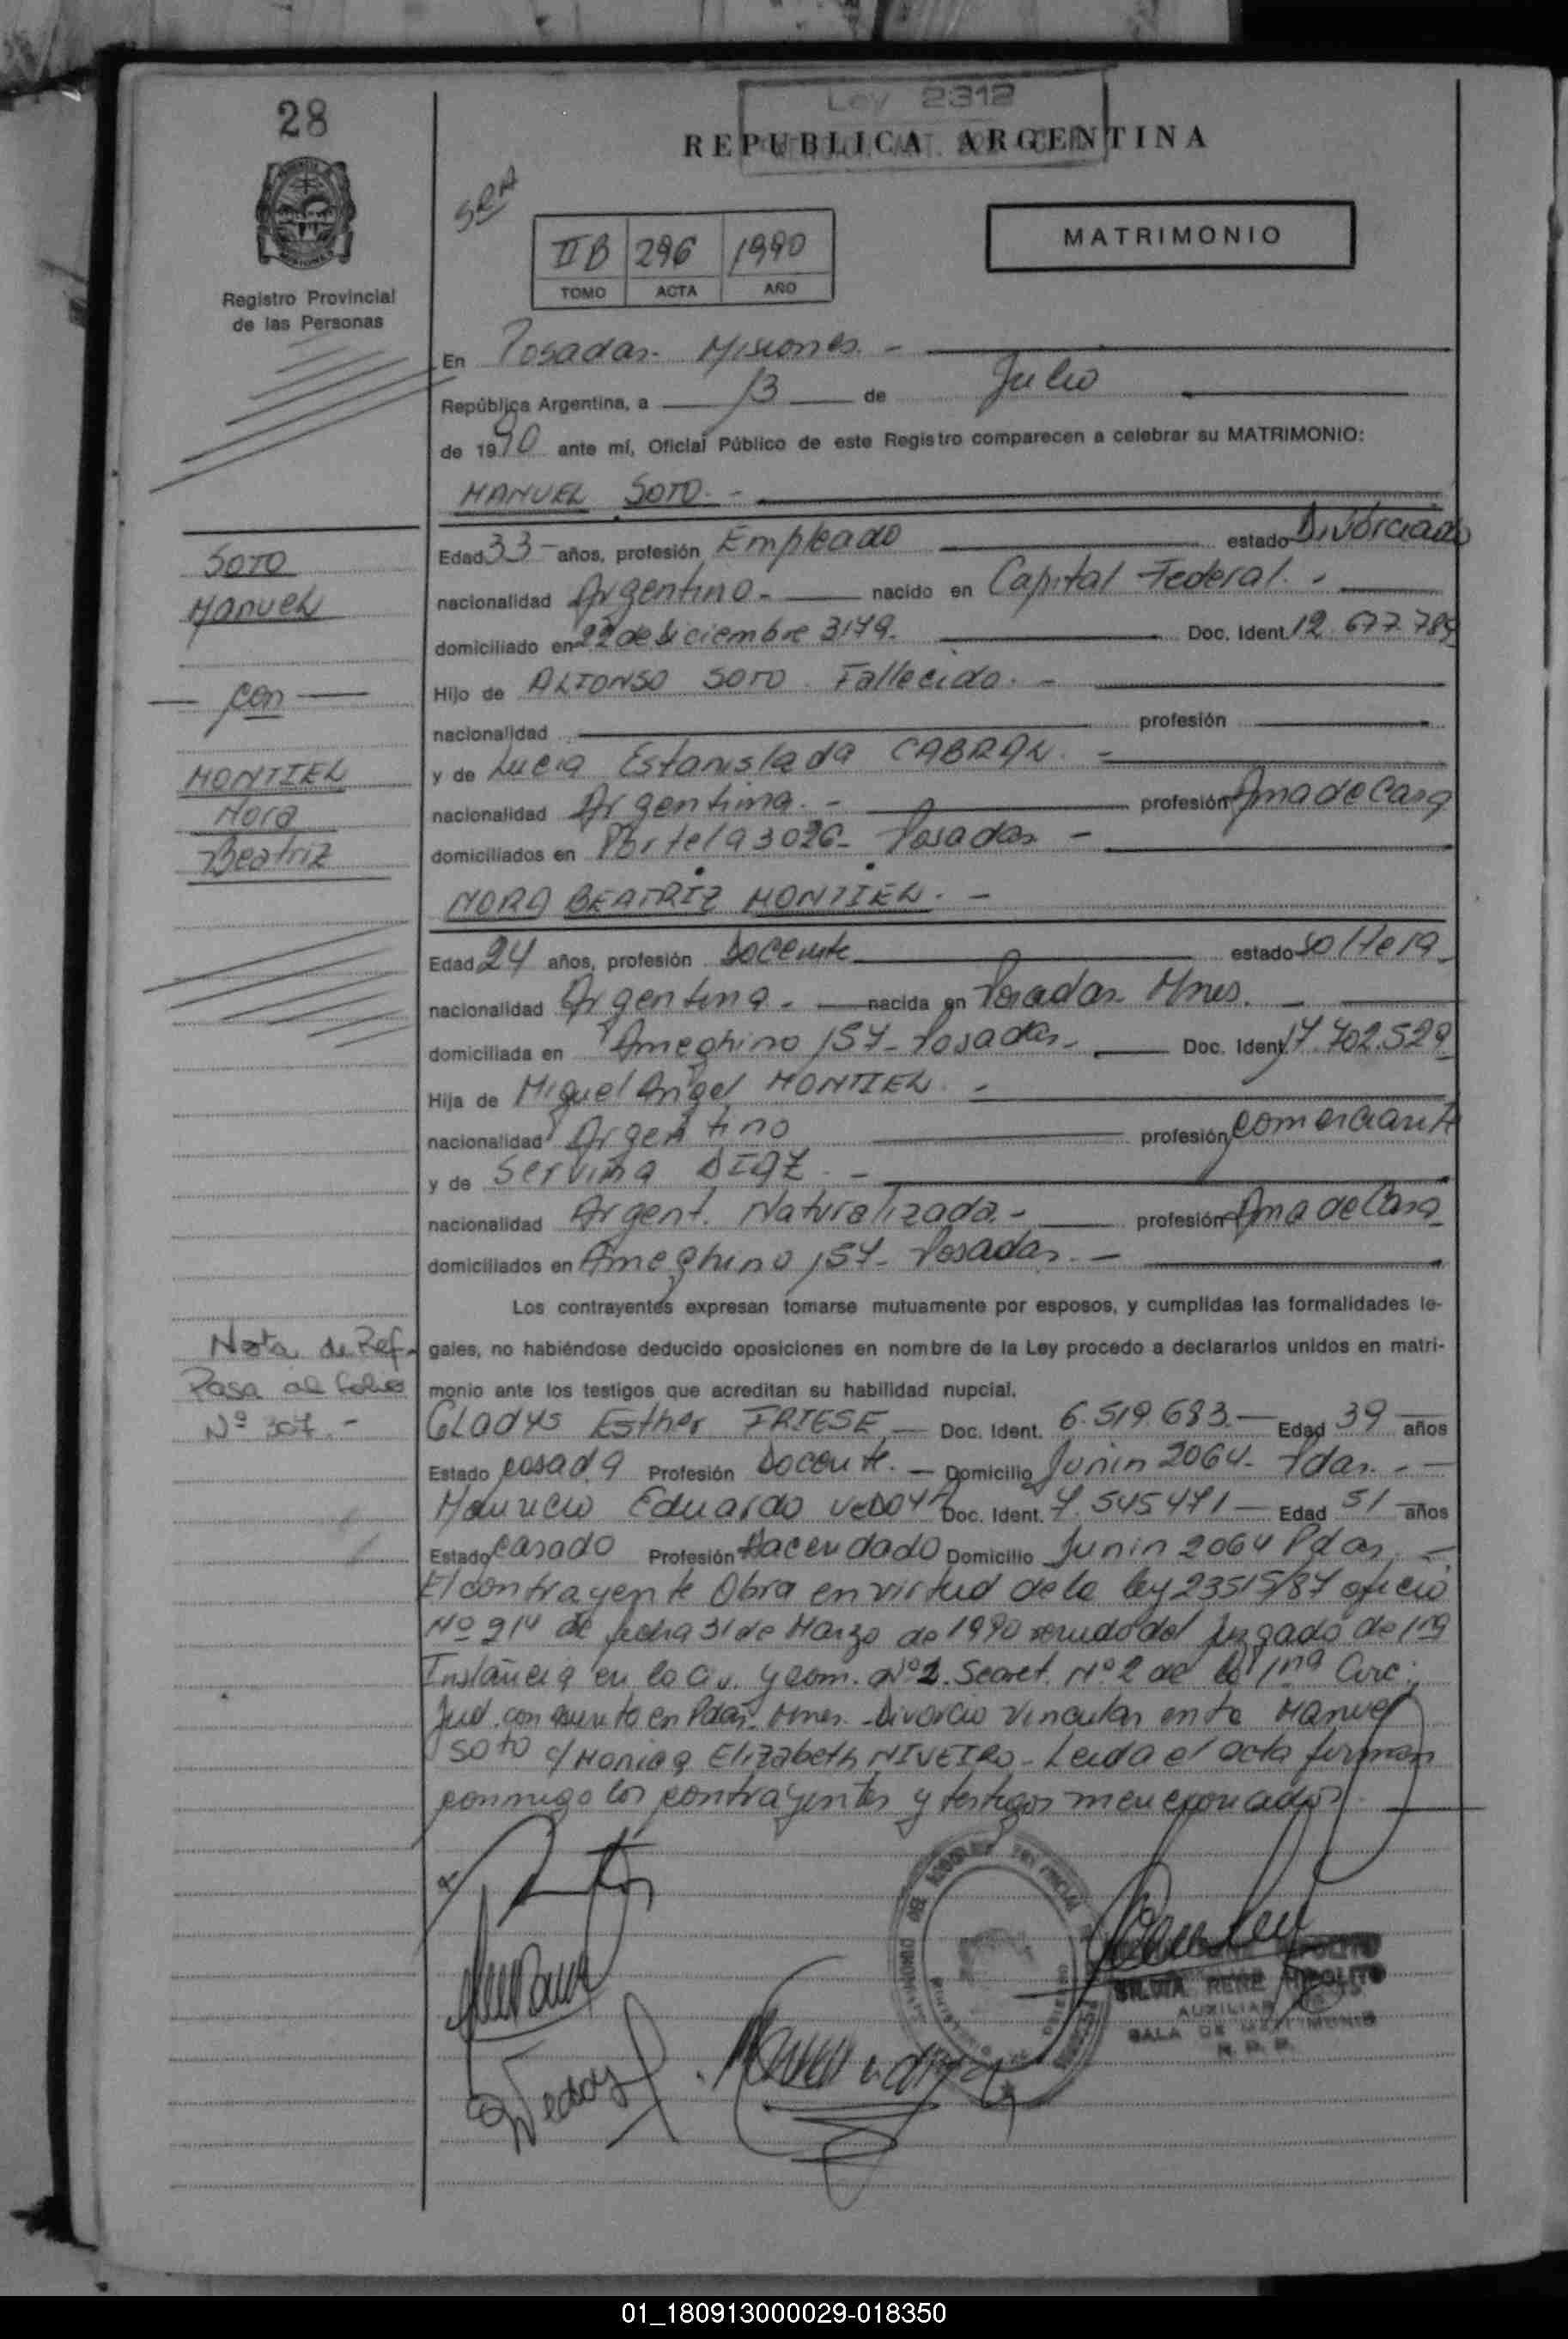 28
Ley 2312
REPUBLICA ARGENTINA
SRA
MATRIMONIO
II B 296 1990
TOMO ACTA AÑO
Registro Provincial
de las Personas
En Posadas - Misiones. -
República Argentina, a 13 de Julio
de 1990 ante mí, Oficial Público de este Registro comparecen a celebrar su MATRIMONIO:
MANUEL SOTO. -
Edad 33 - años, profesión Empleado estado Divorciado
nacionalidad Argentino - nacido en Capital Federal. -
domiciliado en 22 de Diciembre 3179. Doc. Ident. 12.677.789
Hijo de ALFONSO SOTO. Fallecido. -
nacionalidad profesión
y de Lucia Estanislada CABRAL. -
nacionalidad Argentina. - profesión Ama de Casa
domiciliados en Portela 3026 - Posadas -
SOTO
Manuel
con
MONTIEL
Nora
Beatriz
NORA BEATRIZ MONTIEL. -
Edad 24 años, profesión Docente estado Soltera
nacionalidad Argentina. - nacida en Posadas Mnes. -
domiciliada en Ameghino 157 - Posadas - Doc. Ident. 17.702.529
Hija de Miguel Angel MONTIEL. -
nacionalidad Argentino profesión comerciante
y de Servina DIAZ. -
nacionalidad Argent. Naturalizada. - profesión Ama de Casa
domiciliados en Ameghino 157 - Posadas. -
Los contrayentes expresan tomarse mutuamente por esposos, y cumplidas las formalidades le-
gales, no habiéndose deducido oposiciones en nombre de la Ley procedo a declararlos unidos en matri-
monio ante los testigos que acreditan su habilidad nupcial.
Nota de Ref.
Pasa al folio
Nº 307. -
GLadys Esther FRIESE - Doc. Ident. 6.519.683. - Edad 39 años
Estado casada Profesión Docente. - Domicilio Junin 2064 - Pdas. -
Mauricio Eduardo VEDOYA Doc. Ident. 7.545471 - Edad 51 años
Estado casado Profesión Hacendado Domicilio Junin 2064 Pdas. -
El contrayente Obra en virtud de la ley 23515/87 oficio
Nº 914 de fecha 31 de Marzo de 1990 venido del Juzgado de 1ra
Instancia en lo Civ. y Com. Nº 2. Secret. Nº 2 de la 1ra Circ.
Jud. con asiento en Pdas. Mnes. - Divorcio Vincular ente Manuel
Soto c/ Monica Elizabeth NIVEIRO - Leida el acta firman
conmigo los contrayentes y testigos mencionados.
SILVIA RENE HIPOLITO
AUXILIAR
SALA DE MATRIMONIO
R. P. P.
01_180913000029-018350